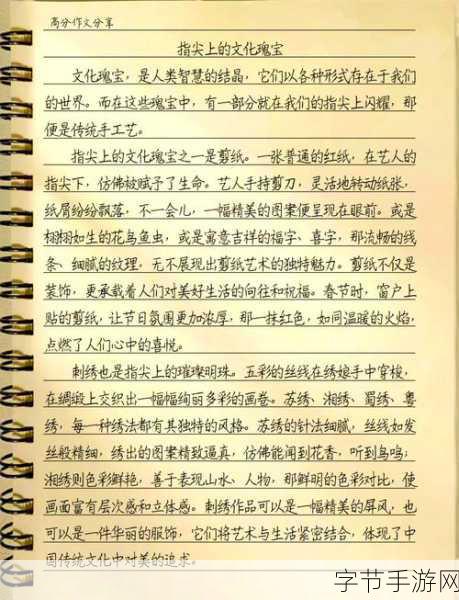 高分作文分享
指尖上的文化瑰宝
文化瑰宝，是人类智慧的结晶，它们以各种形式存在于我们
的世界。而在这些瑰宝中，有一部分就在我们的指尖上闪耀，那
便是传统手工艺。
指尖上的文化瑰宝之一是剪纸。一张普通的红纸，在艺人的
指尖下，仿佛被赋予了生命。艺人手持剪刀，灵活地转动纸张，
纸屑纷纷飘落，不一会儿，一幅精美的图案便呈现在眼前。或是
栩栩如生的花鸟鱼虫，或是寓意吉祥的福字、喜字，那流畅的线
条、细腻的纹理，无不展现出剪纸艺术的独特魅力。剪纸不仅是
装饰，更承载着人们对美好生活的向往和祝福。春节时，窗户上
贴的剪纸，让节日氛围更加浓厚，那一抹红色，如同温暖的火焰，
点燃了人们心中的喜悦。
刺绣也是指尖上的璀璨明珠。五彩的丝线在绣娘手中穿梭，
在绸缎上交织出一幅幅绚丽多彩的画卷。苏绣、湘绣、蜀绣、粤
绣，每一种绣法都有其独特的风格。苏绣的针法细腻，丝线如发
丝般精细，绣出的图案精致逼真，仿佛能闻到花香，听到鸟鸣；
湘绣则色彩鲜艳，善于表现山水、人物，那鲜明的色彩对比，使
画面富有层次感和立体感。刺绣作品可以是一幅精美的屏风，也
可以是一件华丽的服饰，它们将艺术与生活紧密结合，体现了中
国传统文化中对美的追求。
字节手游网